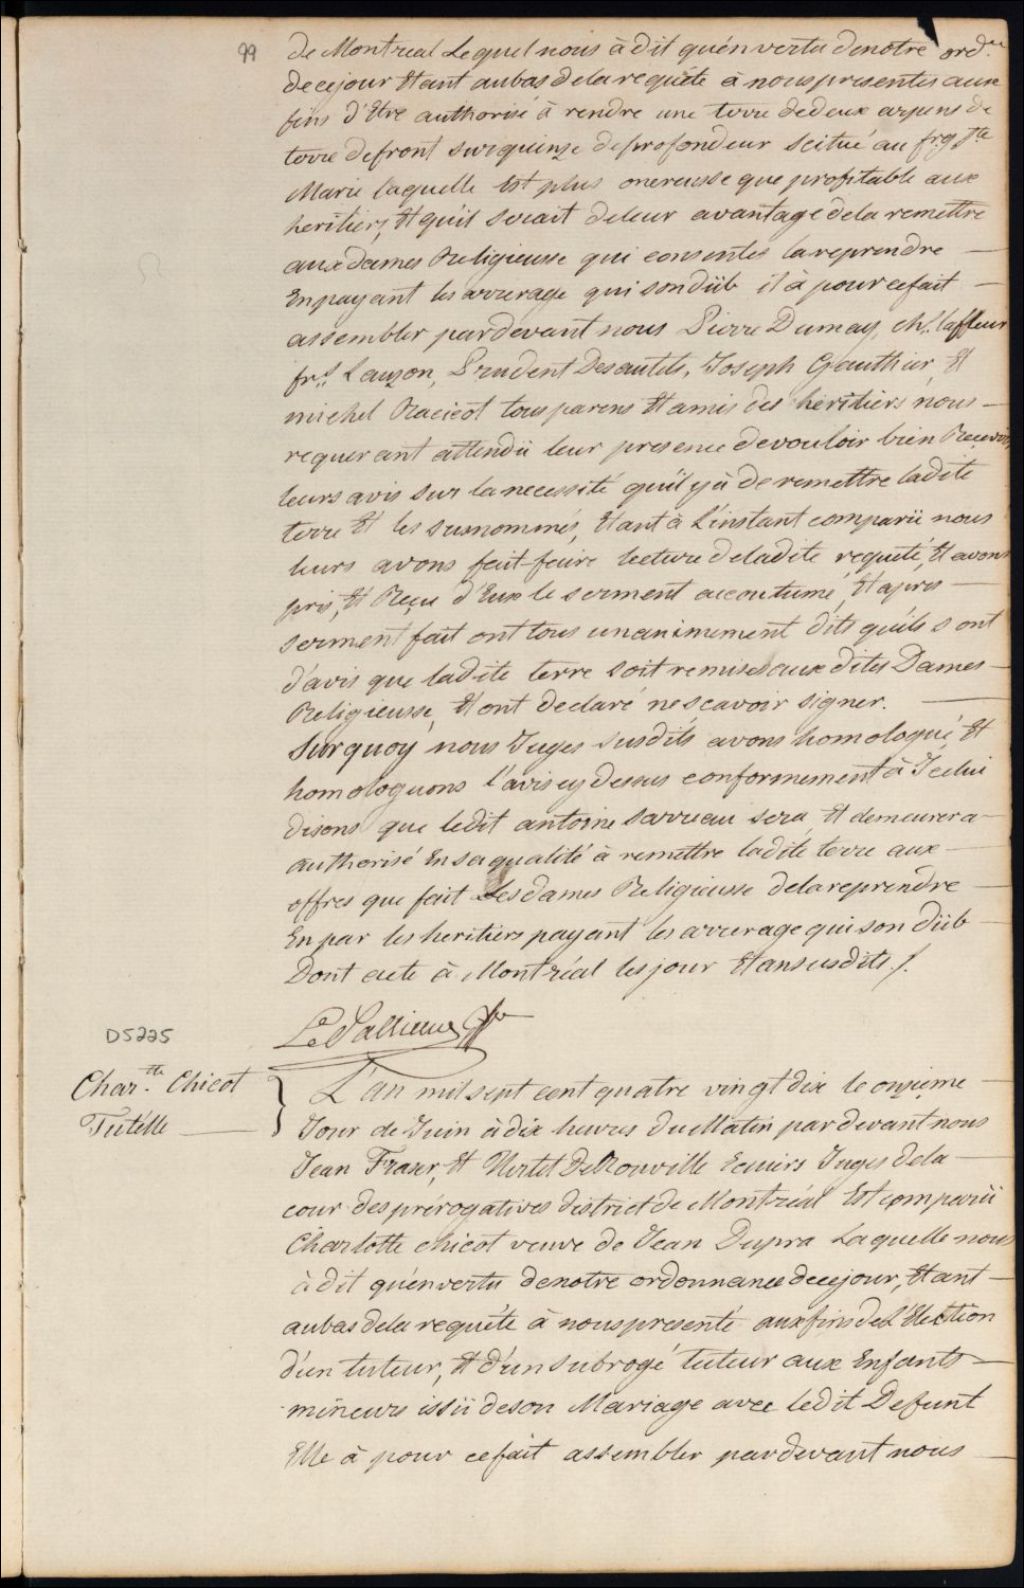 99
de Montreal Lequel nous à dit qu'én vertu denotre ord.ce
decejour Etant aubas dela requête à nous presentés aux
fins d'Etre authorisé à rendre une terre dedeux arpens de
terre defront sur quinze deprofondeur Scitué au frg Ste
Marie laquelle Est plus onereusse que profitable aux
heritiers, Et qu'il serait deleur avantage dela remettre
aux dames Religieusse qui consentes la reprendre —
En payant les arrerage qui son düb il à pour cefait —
assembler pardevant nous Pierre Dumay, chs. laffleur
frs. Lauzon, Prudent Desautels, Joseph Gauthier, Et
michel Racicot tous parens Et amis des heritiers nous —
requerant attendü leur presence devouloir bien Recevoir
leurs avis sur la necessité qu'il y à de remettre ladite
terre Et les susnommés, Etant à L'instant comparü nous
leurs avons fait faire lecture deladite requête, Et avons
pris, Et Reçu d'Eux le serment accoutumé, Et apres —
serment fait ont tous unanimement dits qu'ils sont
d'avis que ladite terre soit remises aux dites Dames —
Religieusse, Et ont declaré nescavoir signer. —
Surquoÿ nous Juges susdits avons homologué, Et
homologuons l'avis cy dessus conformement à Icelui
disons que ledit antoine sarreau sera Et demeurera —
authorisé En saqualité à remettre ladite terre aux —
offres que fait Les dames Religieusse delareprendre —
En par les heritiers payant les arrerage qui son düb —
Dont acte à Montréal les jour Et ansusdits ./.
Le Pallieur Gr
D5225
Char.tte Chicot
Tutélle —
L'an mil sept cent quatre vingt dix le onzieme —
Jour de Juin à dix heures du Matin pardevant nous
Jean Fraser, Et Hertel DeRouville Ecuiers Juges dela —
cour des prérogatives district de Montréal Est comparüi
Charlotte chicot veuve de Jean Dupra Laquelle nous
à dit qu'en vertu denotre ordonnance decejour, Etant —
aubas dela requête à nous presenté aux fins de L'Election
d'un tuteur, Et d'un subrogé tuteur aux Enfants —
mineurs issü deson Mariage avec ledit Defunt
Elle à pour cefait assembler pardevant nous —